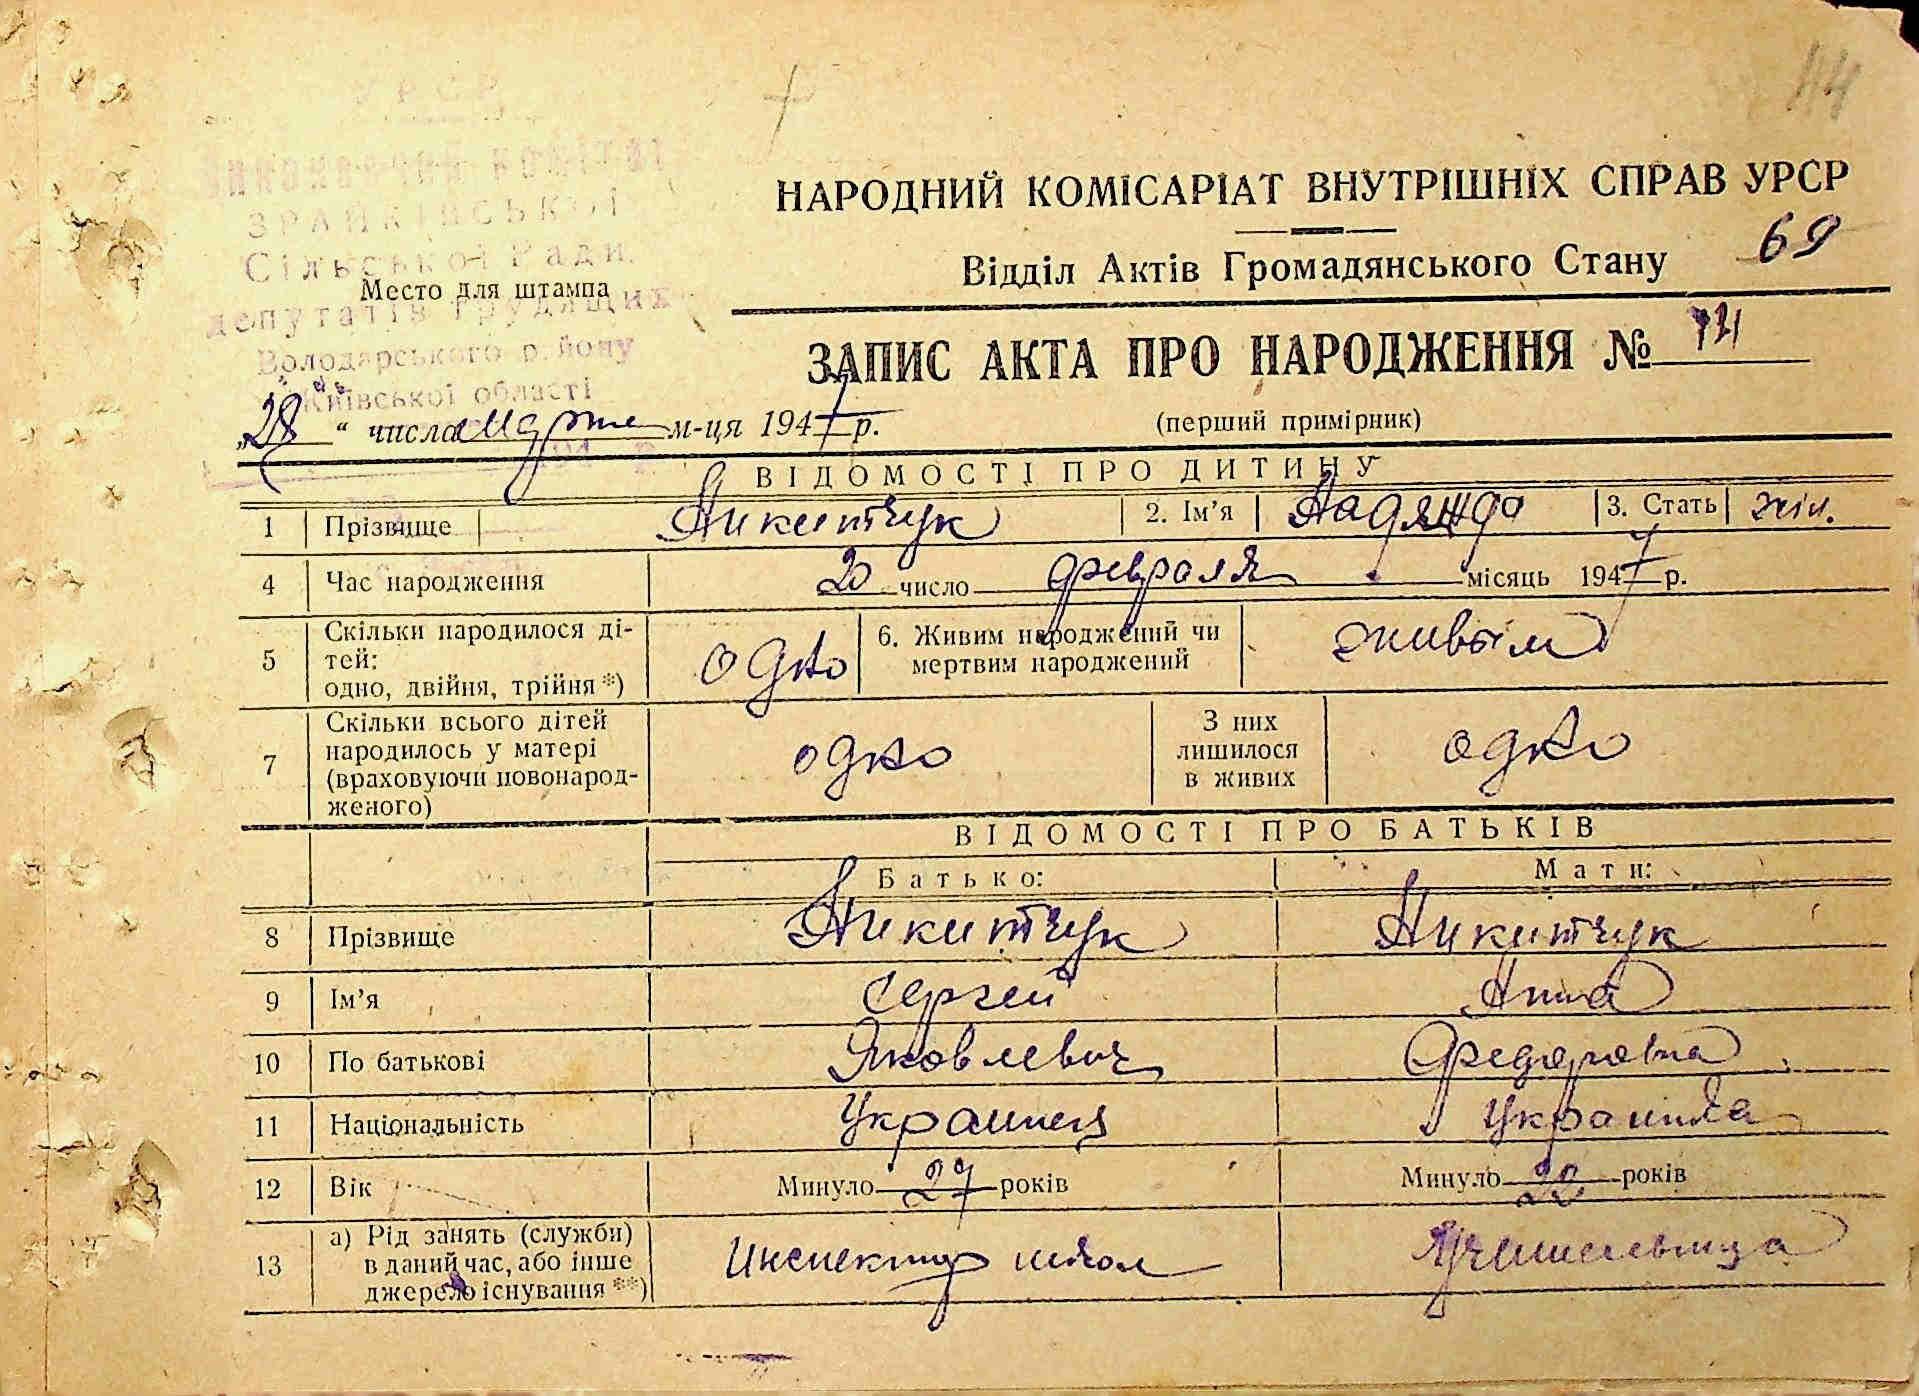 44
УРСР
ВИКОНАВЧИЙ КОМІТЕТ
ЗРАЙКІВСЬКОЇ
Сільської Ради
депутатів трудящих
Володарського району
Київської області
Место для штампа
НАРОДНИЙ КОМІСАРІАТ ВНУТРІШНІХ СПРАВ УРСР
Відділ Актів Громадянського Стану 69
ЗАПИС АКТА ПРО НАРОДЖЕННЯ №
„28“ числа марта м-ця 1947 р. (перший примірник)
ВІДОМОСТІ ПРО ДИТИНУ
1 Прізвище Никитчук 2. Ім’я Надянда 3. Стать жін.
4 Час народження 20 число февраля місяць 1947 р.
5 Скільки народилося ді-
тей:
одно, двійня, трійня*) одно 6. Живим народжений чи
мертвим народжений живым
7 Скільки всього дітей
народилось у матері
(враховуючи новонарод-
женого) одно З них
лишилося
в живих одно
ВІДОМОСТІ ПРО БАТЬКІВ
Батько: Мати:
8 Прізвище Никитчук Никитчук
9 Ім’я Сергей Анна
10 По батькові Яковлевич Федоровна
11 Національність Украинец Украинка
12 Вік Минуло 27 років Минуло 22 років
13 а) Рід занять (служби)
в даний час, або інше
джерело існування **) Инспектор школ Учительница